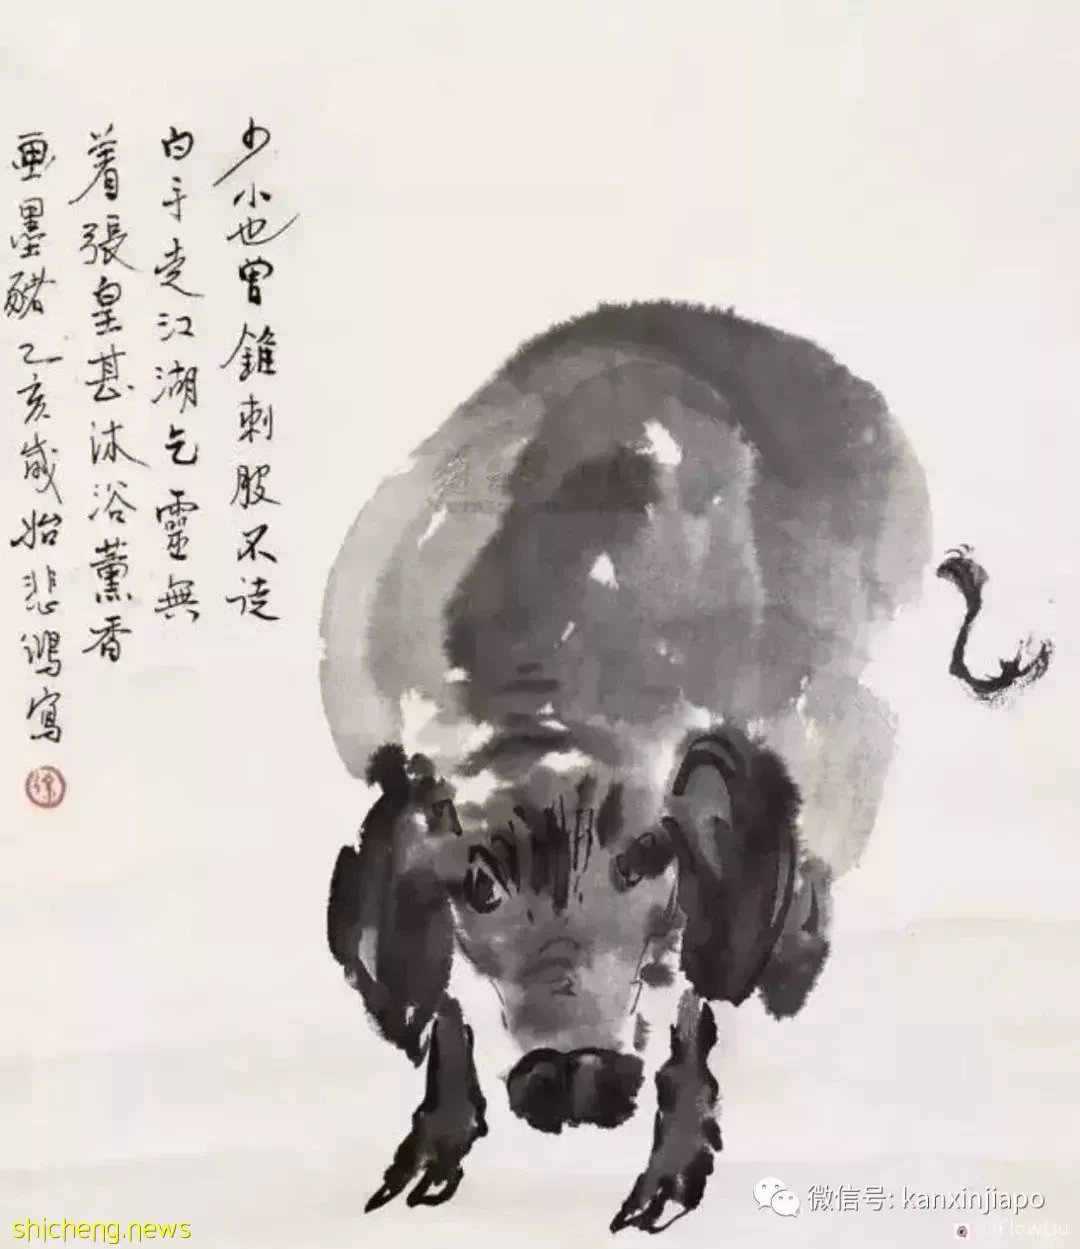 少小也曾錐刺股不徒
白手走江湖乞靈無
着張皇甚沐浴薰香
画墨豬乙亥歲始悲鴻寫
徐
微信号: kanxinjiapo
@FlowLiu
shicheng.news